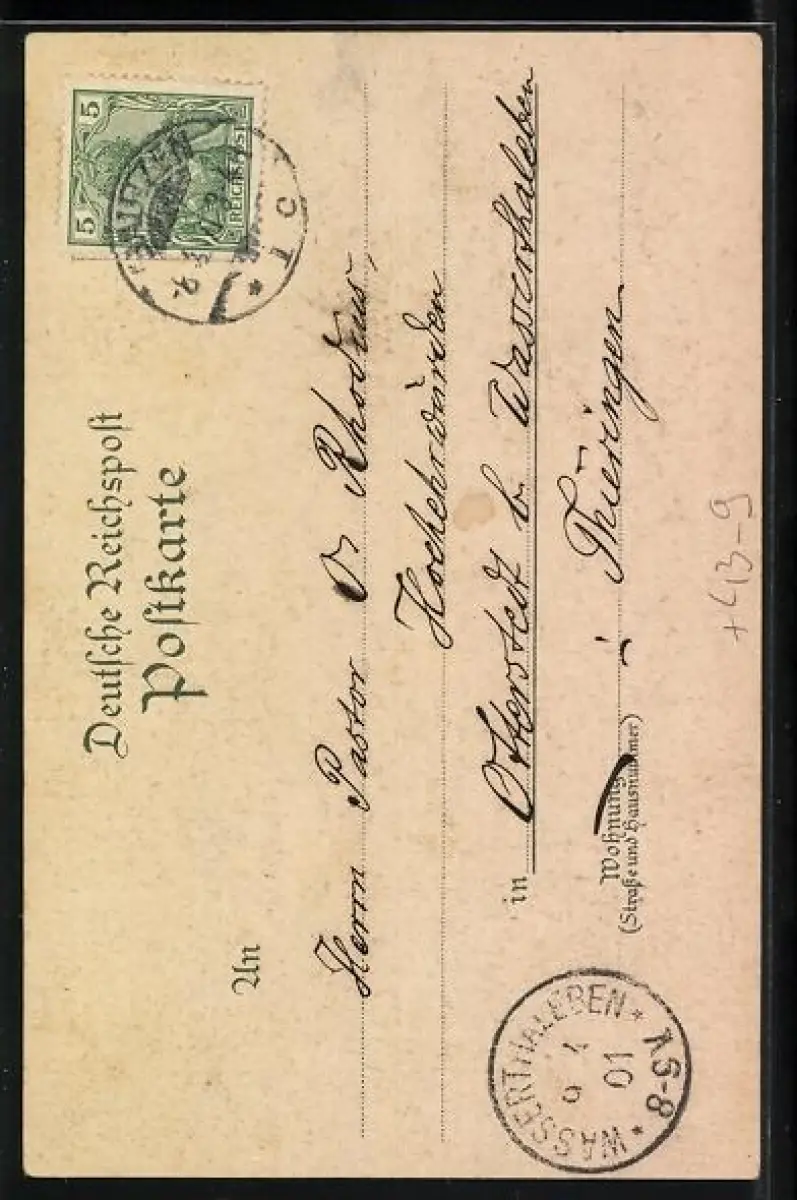 Deutsche Reichspost
Postkarte
5 5
REICHSPOST
* BAUTZEN *
1 c
An
Herrn Pastor O Rhodius,
Hochehrwürden
in Otterstedt b. Wasserthaleben
Thüringen
Wohnung
(Straße und Hausnummer)
* WASSERTHALEBEN *
9 4
01
8-9V
+ 413-9